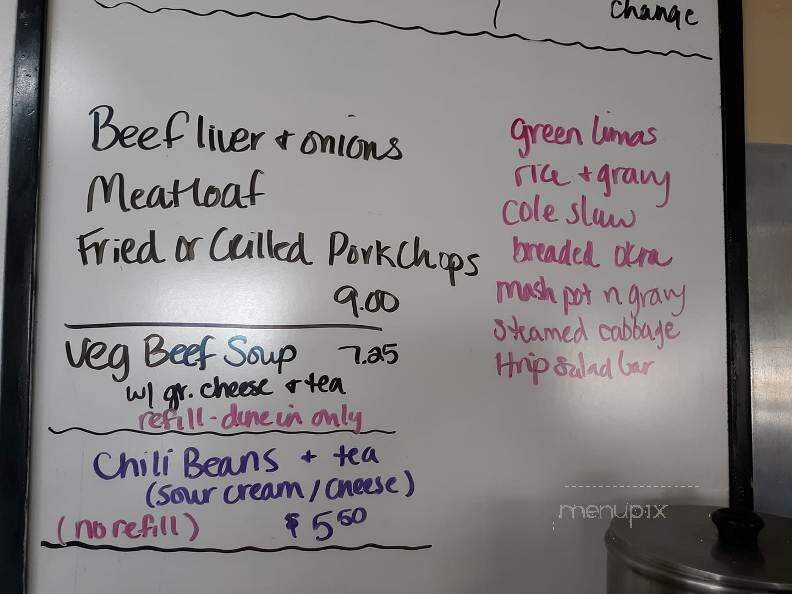 change
Beef liver + onions
Meatloaf
Fried or Grilled Pork Chops
9.00
Veg Beef Soup 7.25
w/ gr. cheese + tea
refill - dine in only
Chili Beans + tea
(sour cream / cheese)
(no refill) $5.50
green limas
rice + gravy
cole slaw
breaded okra
mash pot n gravy
steamed cabbage
1 trip salad bar
menupix